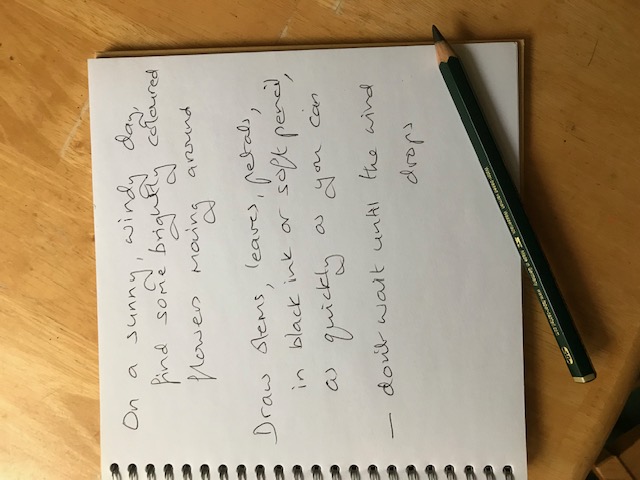 On a sunny, windy day,
find some brightly coloured
flowers moving around
Draw stems, leaves, petals,
in black ink or soft pencil,
as quickly as you can
— don't wait until the wind
drops